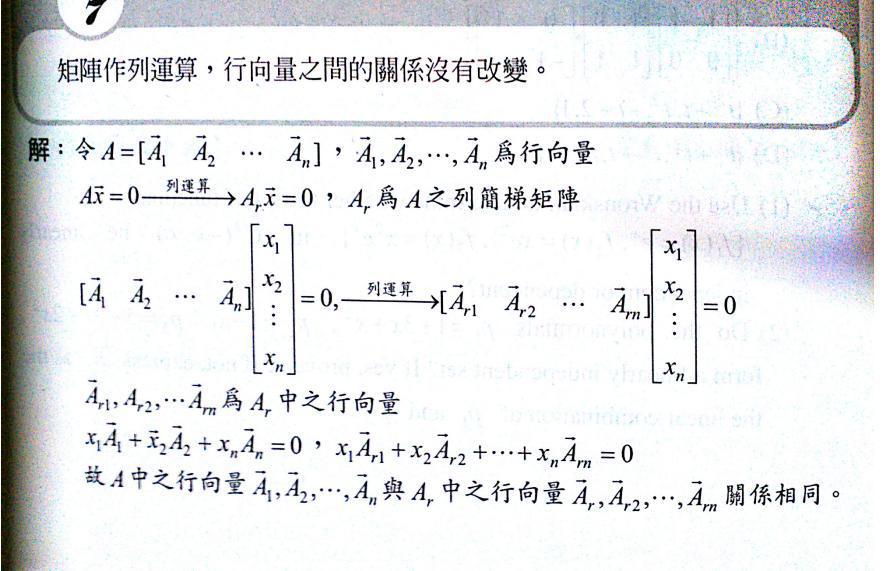 7
矩陣作列運算，行向量之間的關係沒有改變。
解：令 A=[A⃗₁ A⃗₂ ⋯ A⃗ₙ]，A⃗₁, A⃗₂,⋯, A⃗ₙ 爲行向量
Ax⃗=0 —列運算→ Aᵣx⃗=0，Aᵣ 爲 A 之列簡梯矩陣
[A⃗₁ A⃗₂ ⋯ A⃗ₙ][x₁ x₂ ⋮ xₙ]=0, —列運算→ [A⃗ᵣ₁ A⃗ᵣ₂ ⋯ A⃗ᵣₙ][x₁ x₂ ⋮ xₙ]=0
A⃗ᵣ₁, Aᵣ₂,⋯A⃗ᵣₙ 爲 Aᵣ 中之行向量
x₁A⃗₁+x⃗₂A⃗₂+xₙA⃗ₙ=0，x₁A⃗ᵣ₁+x₂A⃗ᵣ₂+⋯+xₙA⃗ᵣₙ=0
故 A 中之行向量 A⃗₁, A⃗₂,⋯, A⃗ₙ 與 Aᵣ 中之行向量 A⃗ᵣ, A⃗ᵣ₂,⋯, A⃗ᵣₙ 關係相同。